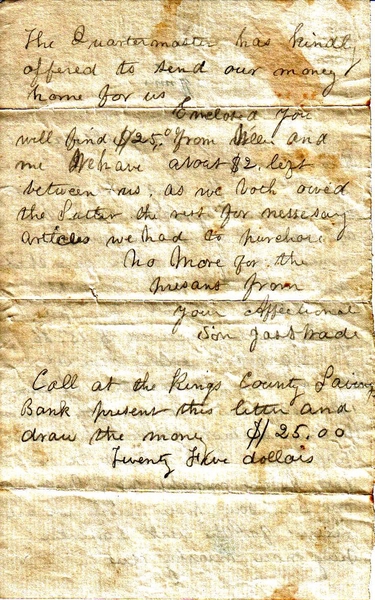 The Quartermaster has kindly
offered to send our money
home for us
Enclosed you
will find $25.00 from Allen and
me We have about $2. left
between us, as we both owed
the Sutter the rest for nessesary
articles we had to purchase
No More for the
presant from
your affectional
Son Jas
Call at the Kings County Saving
Bank present this letter and
draw the money $25.00
Twenty Five dollars